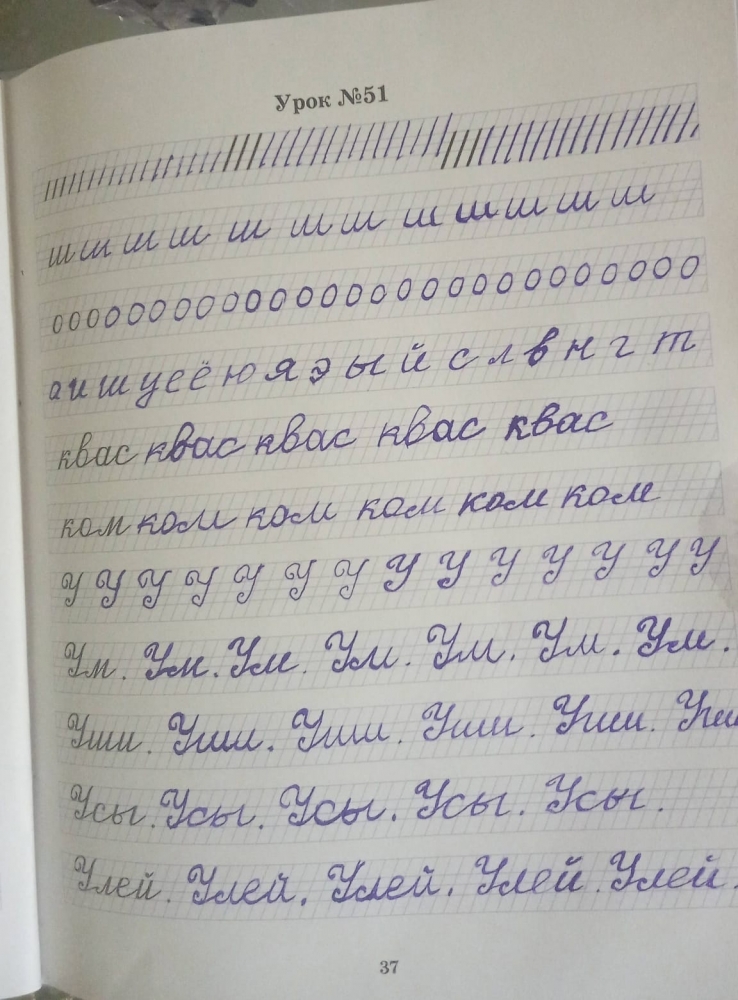 Урок №51
ш ш ш ш ш ш ш ш ш ш ш ш
о о о о о о о о о о о о о о о о о о о о о о о о о о о о
а и ш у е ё ю я э ы й с л в н г т
квас квас квас квас квас
ком ком ком ком ком ком
У У У У У У У У У У У У У У
Ум. Ум. Ум. Ум. Ум. Ум. Ум.
Уши. Уши. Уши. Уши. Уши. Уши
Усы. Усы. Усы. Усы. Усы.
Улей. Улей. Улей. Улей. Улей.
37